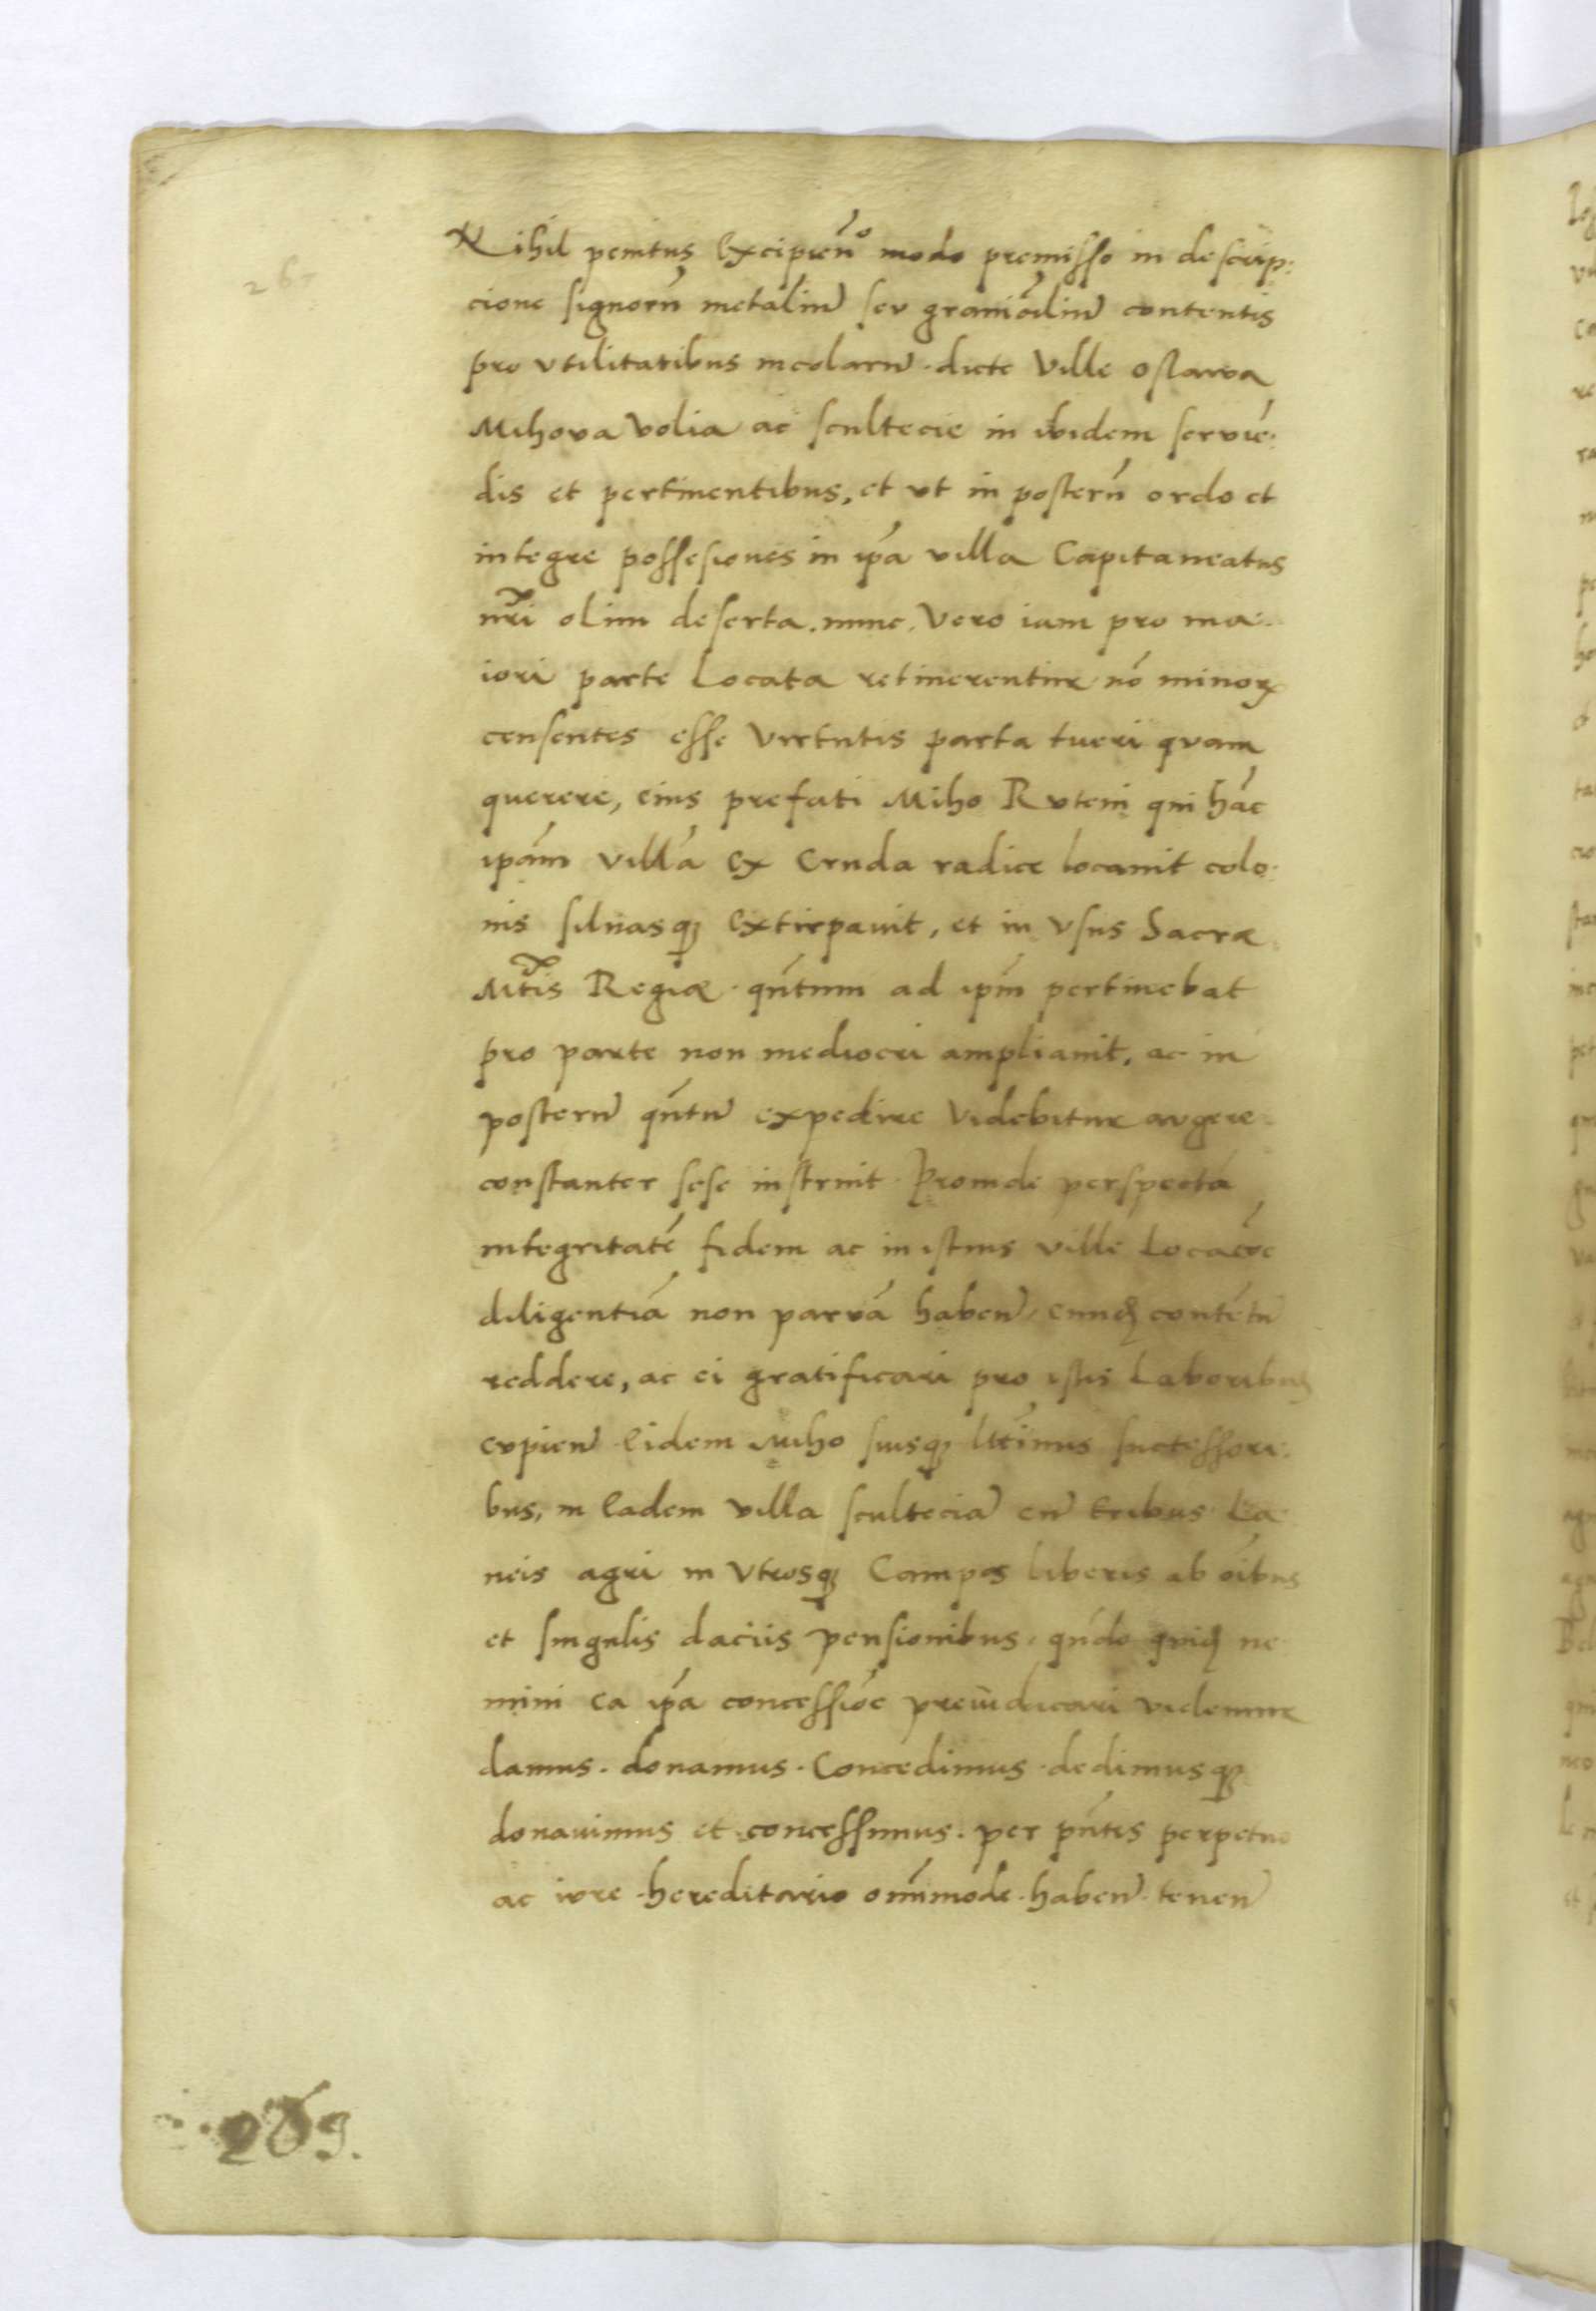 Nihil penitus Excipien̄o modo premisso in descrip:
cione signorū metaliū seu graniōiliū contentis
pro vtilitatibus incolarū dicte Ville ostarva
Mihova Volia ac scultecie in ibidem serviē:
dis et pertinentibus, et vt in posterū ordo et
integre possesiones in ip̄a villa Capitaneatus
nr̄i olim deserta. nunc. Vero iam pro ma:
iori parte Locata retinerentur nō minorꝝ
censentes esse Virtutis parta tueri quam
querere, eius prefati Miho Ruteni qui hāc
ipām villā Ex Cruda radice locauit colo:
nis siluasqꝫ Extirpauit, et in Vsus Sacræ
Mt̄is Regiæ qn̄tum ad ip̄m pertinebat
pro parte non mediocri ampliauit, ac in
posterū qn̄tū expedire Videbitur augere
constanter sese instruit Proinde perspectā
integritatē fidem ac in istius ville Locacōe
diligentiā non parvā haben̄ eumqꝫ contētū
reddere, ac ei gratificari pro istis Laboribus
cupien̄ Eidem Miho suisqꝫ ltīmis successori:
bus, in Eadem villa sculteciā cū tribus La:
neis agri in Vtrosqꝫ Campos liberis ab oībus
et singulis daciis pensionibus, qn̄do quidꝫ ne
mini ea ip̄a concessiōe preiudicari videmur
damus. donamus. Concedimus. dedimusqꝫ
donauimus et concessimus. per pn̄tes perpetuo
ac iure hereditario om̄imode haben̄ tenen̄
267
269.